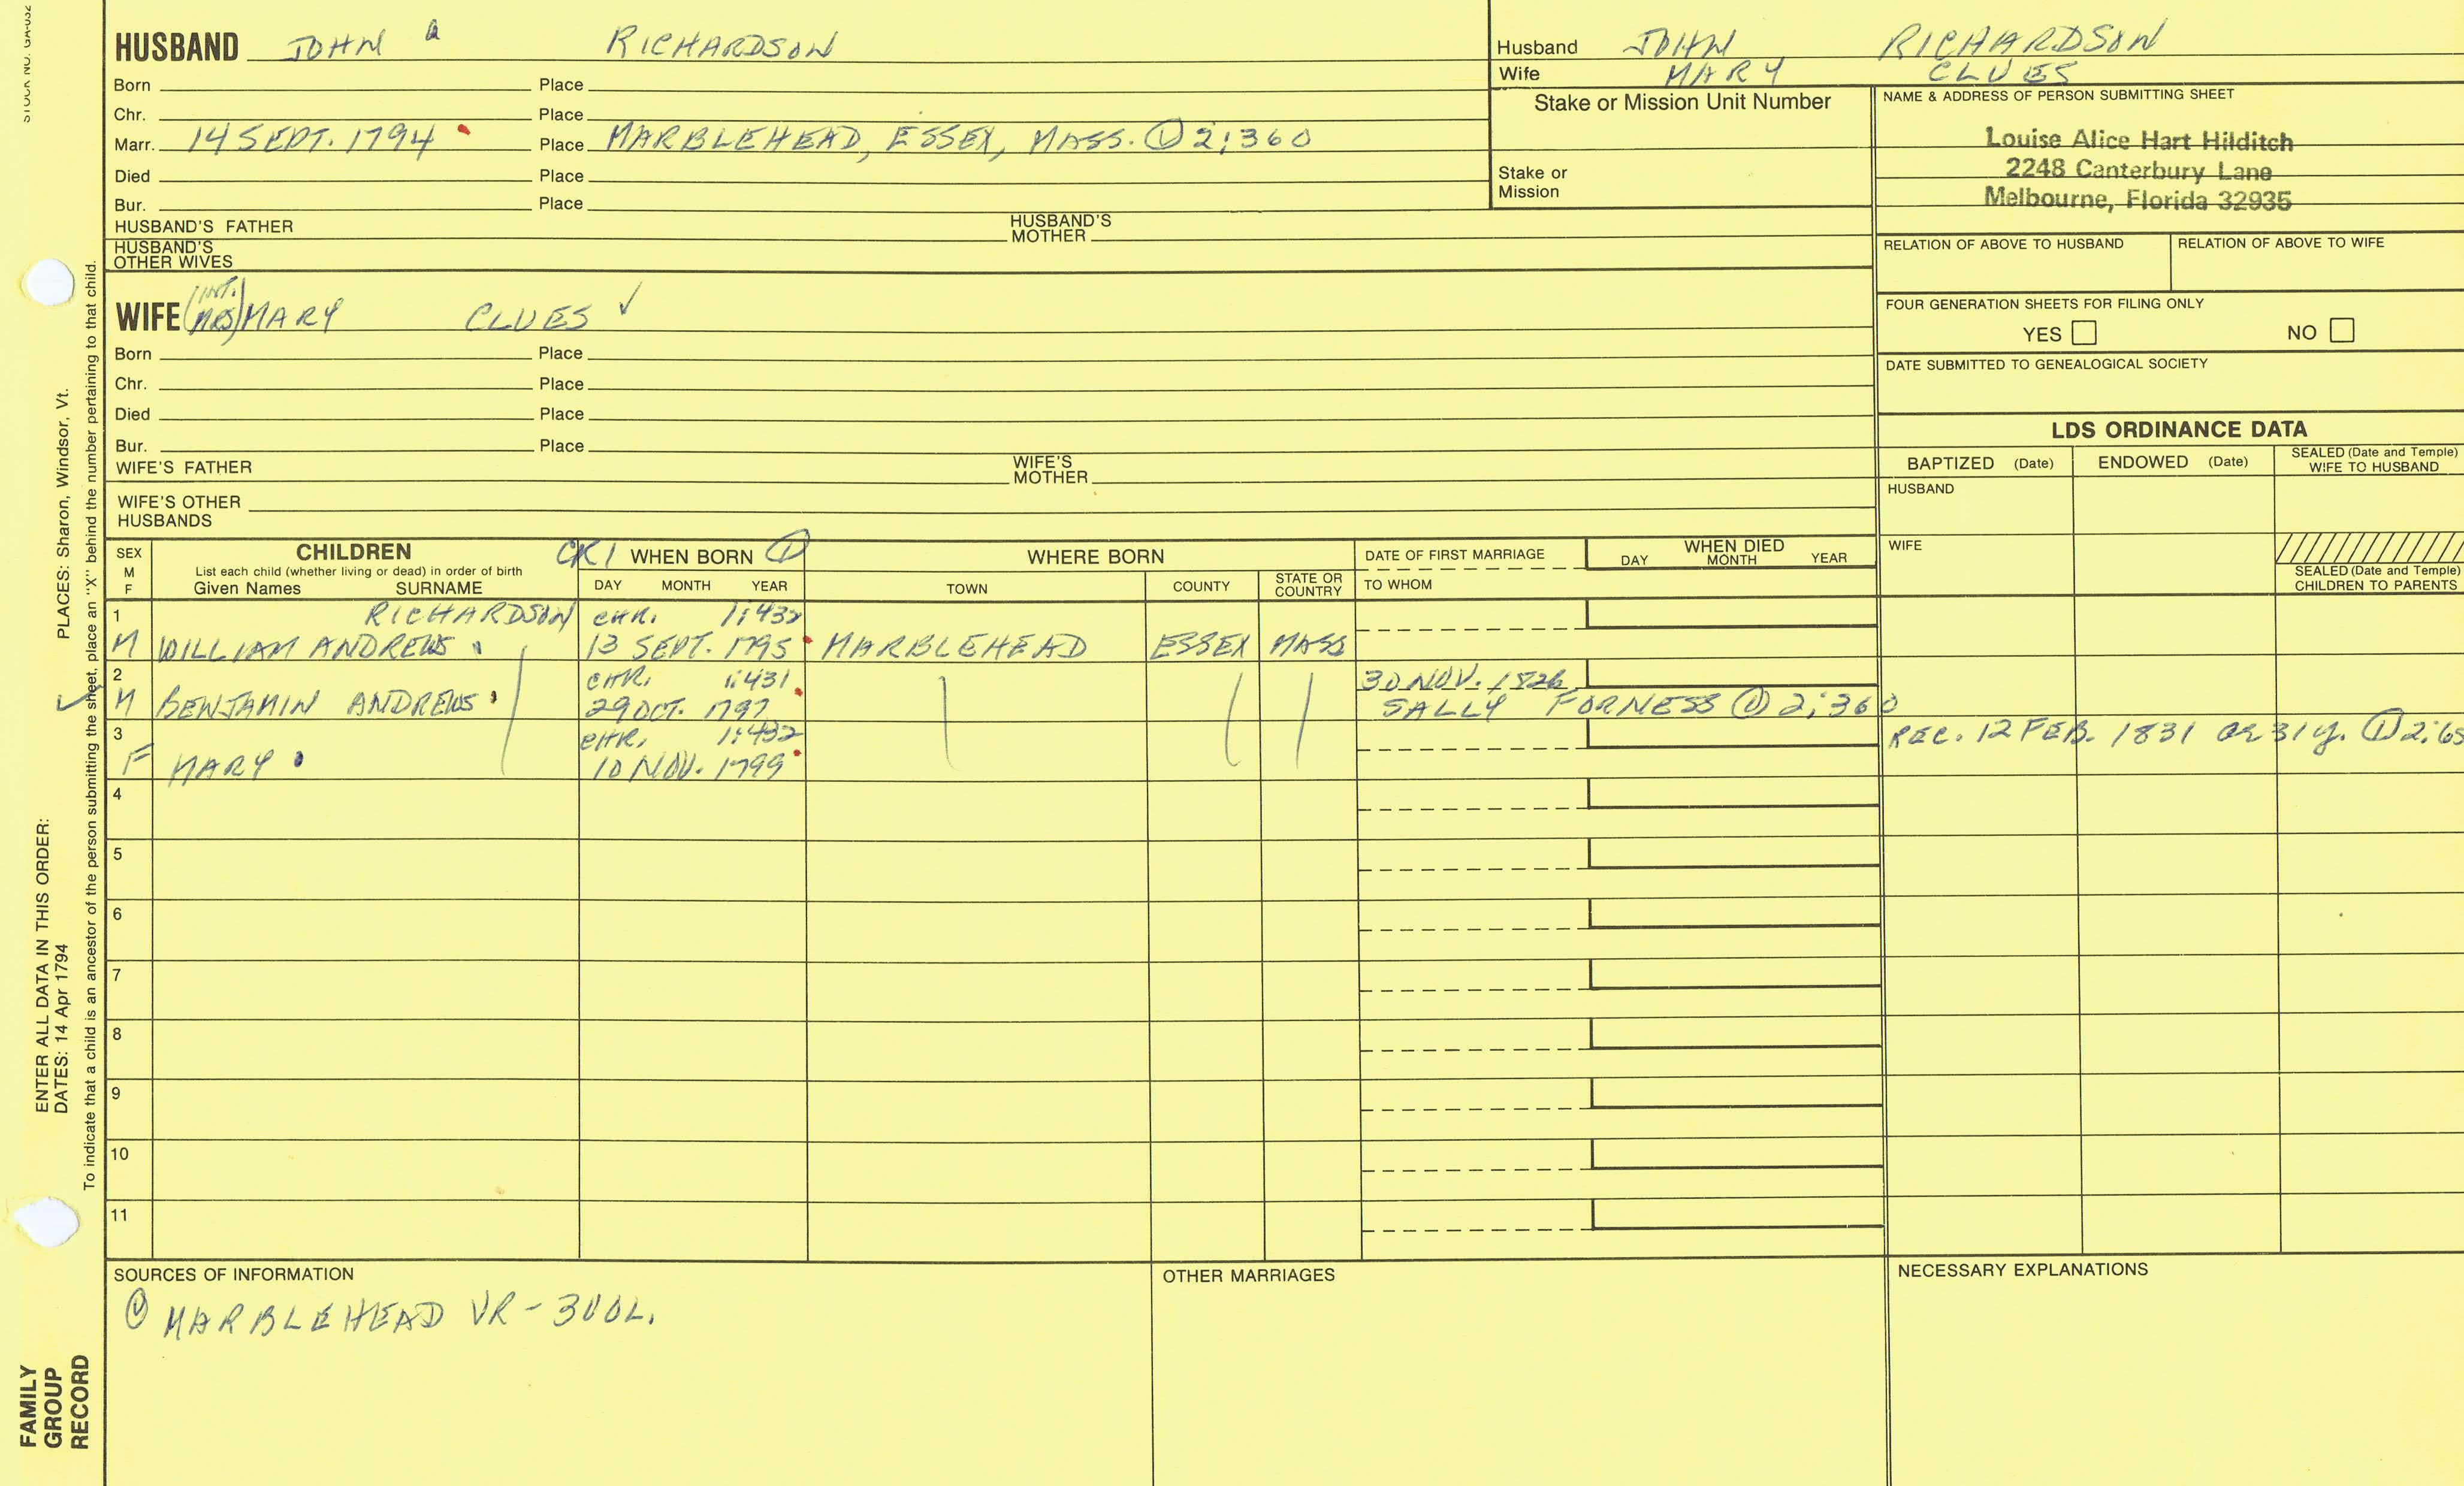 STOCK NO. GA-032
PLACES: Sharon, Windsor, Vt.
ENTER ALL DATA IN THIS ORDER:
DATES: 14 Apr 1794
To indicate that a child is an ancestor of the person submitting the sheet, place an "X" behind the number pertaining to that child.
FAMILY
GROUP
RECORD
HUSBAND JOHN RICHARDSON
Born Place
Chr. Place
Marr. 14 SEPT. 1794 Place MARBLEHEAD, ESSEX, MASS. ① 2:360
Died Place
Bur. Place
HUSBAND'S FATHER HUSBAND'S MOTHER
HUSBAND'S
OTHER WIVES
Husband JOHN RICHARDSON
Wife MARY CLUES
Stake or Mission Unit Number
Stake or
Mission
NAME & ADDRESS OF PERSON SUBMITTING SHEET
Louise Alice Hart Hilditch
2248 Canterbury Lane
Melbourne, Florida 32935
RELATION OF ABOVE TO HUSBAND RELATION OF ABOVE TO WIFE
FOUR GENERATION SHEETS FOR FILING ONLY
YES NO
DATE SUBMITTED TO GENEALOGICAL SOCIETY
(INT.
WIFE MRS) MARY CLUES ✓
Born Place
Chr. Place
Died Place
Bur. Place
WIFE'S FATHER WIFE'S MOTHER
WIFE'S OTHER
HUSBANDS
LDS ORDINANCE DATA
BAPTIZED (Date) ENDOWED (Date) SEALED (Date and Temple) WIFE TO HUSBAND
HUSBAND
WIFE
SEALED (Date and Temple)
CHILDREN TO PARENTS
SEX
M
F
CHILDREN
List each child (whether living or dead) in order of birth
Given Names SURNAME
CK1 WHEN BORN ①
DAY MONTH YEAR
WHERE BORN
TOWN COUNTY STATE OR COUNTRY
DATE OF FIRST MARRIAGE
TO WHOM
WHEN DIED
DAY MONTH YEAR
1 RICHARDSON CHR. 1:432
M WILLIAM ANDREWS 13 SEPT. 1795 MARBLEHEAD ESSEX MASS
2 CHR. 1:431 30 NOV. 1826
✓ M BENJAMIN ANDREWS 29 OCT. 1797 SALLY FORNESS ① 2:360
3 CHR. 1:432 REC. 12 FEB. 1831 ae 31 y. ① 2:65
F MARY 10 NOV. 1799
4
5
6
7
8
9
10
11
SOURCES OF INFORMATION
① MARBLEHEAD VR - 3 VOL.
OTHER MARRIAGES
NECESSARY EXPLANATIONS